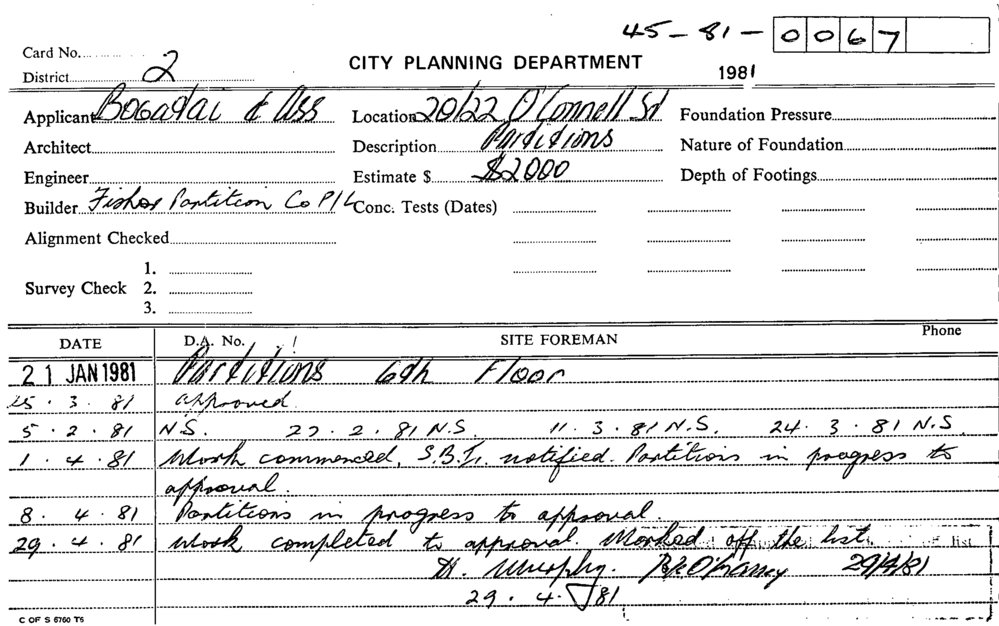 45 - 81 - 0067
Card No.
District 2
CITY PLANNING DEPARTMENT
1981
Applicant Bogadai & Ass Location 20/22 O'Connell St Foundation Pressure
Architect Description Partitions Nature of Foundation
Engineer Estimate $ $2000 Depth of Footings
Builder Fisher Partition Co P/L Conc. Tests (Dates)
Alignment Checked
1.
Survey Check 2.
3.
DATE D.A. No. SITE FOREMAN Phone
21 JAN 1981 Partitions 6th Floor
25 . 3 . 81 approved.
5 . 2 . 81 N.S. 27 . 2 . 81 N.S. 11 . 3 . 81 N.S. 24 . 3 . 81 N.S.
1 . 4 . 81 Work commenced, S.B.I. notified. Partitions in progress to
approval.
8 . 4 . 81 Partitions in progress to approval.
29 . 4 . 81 Work completed to approval. Marked off the list. list
Murphy. 29/4/81
29 . 4 . 81
C OF S 6760 T5